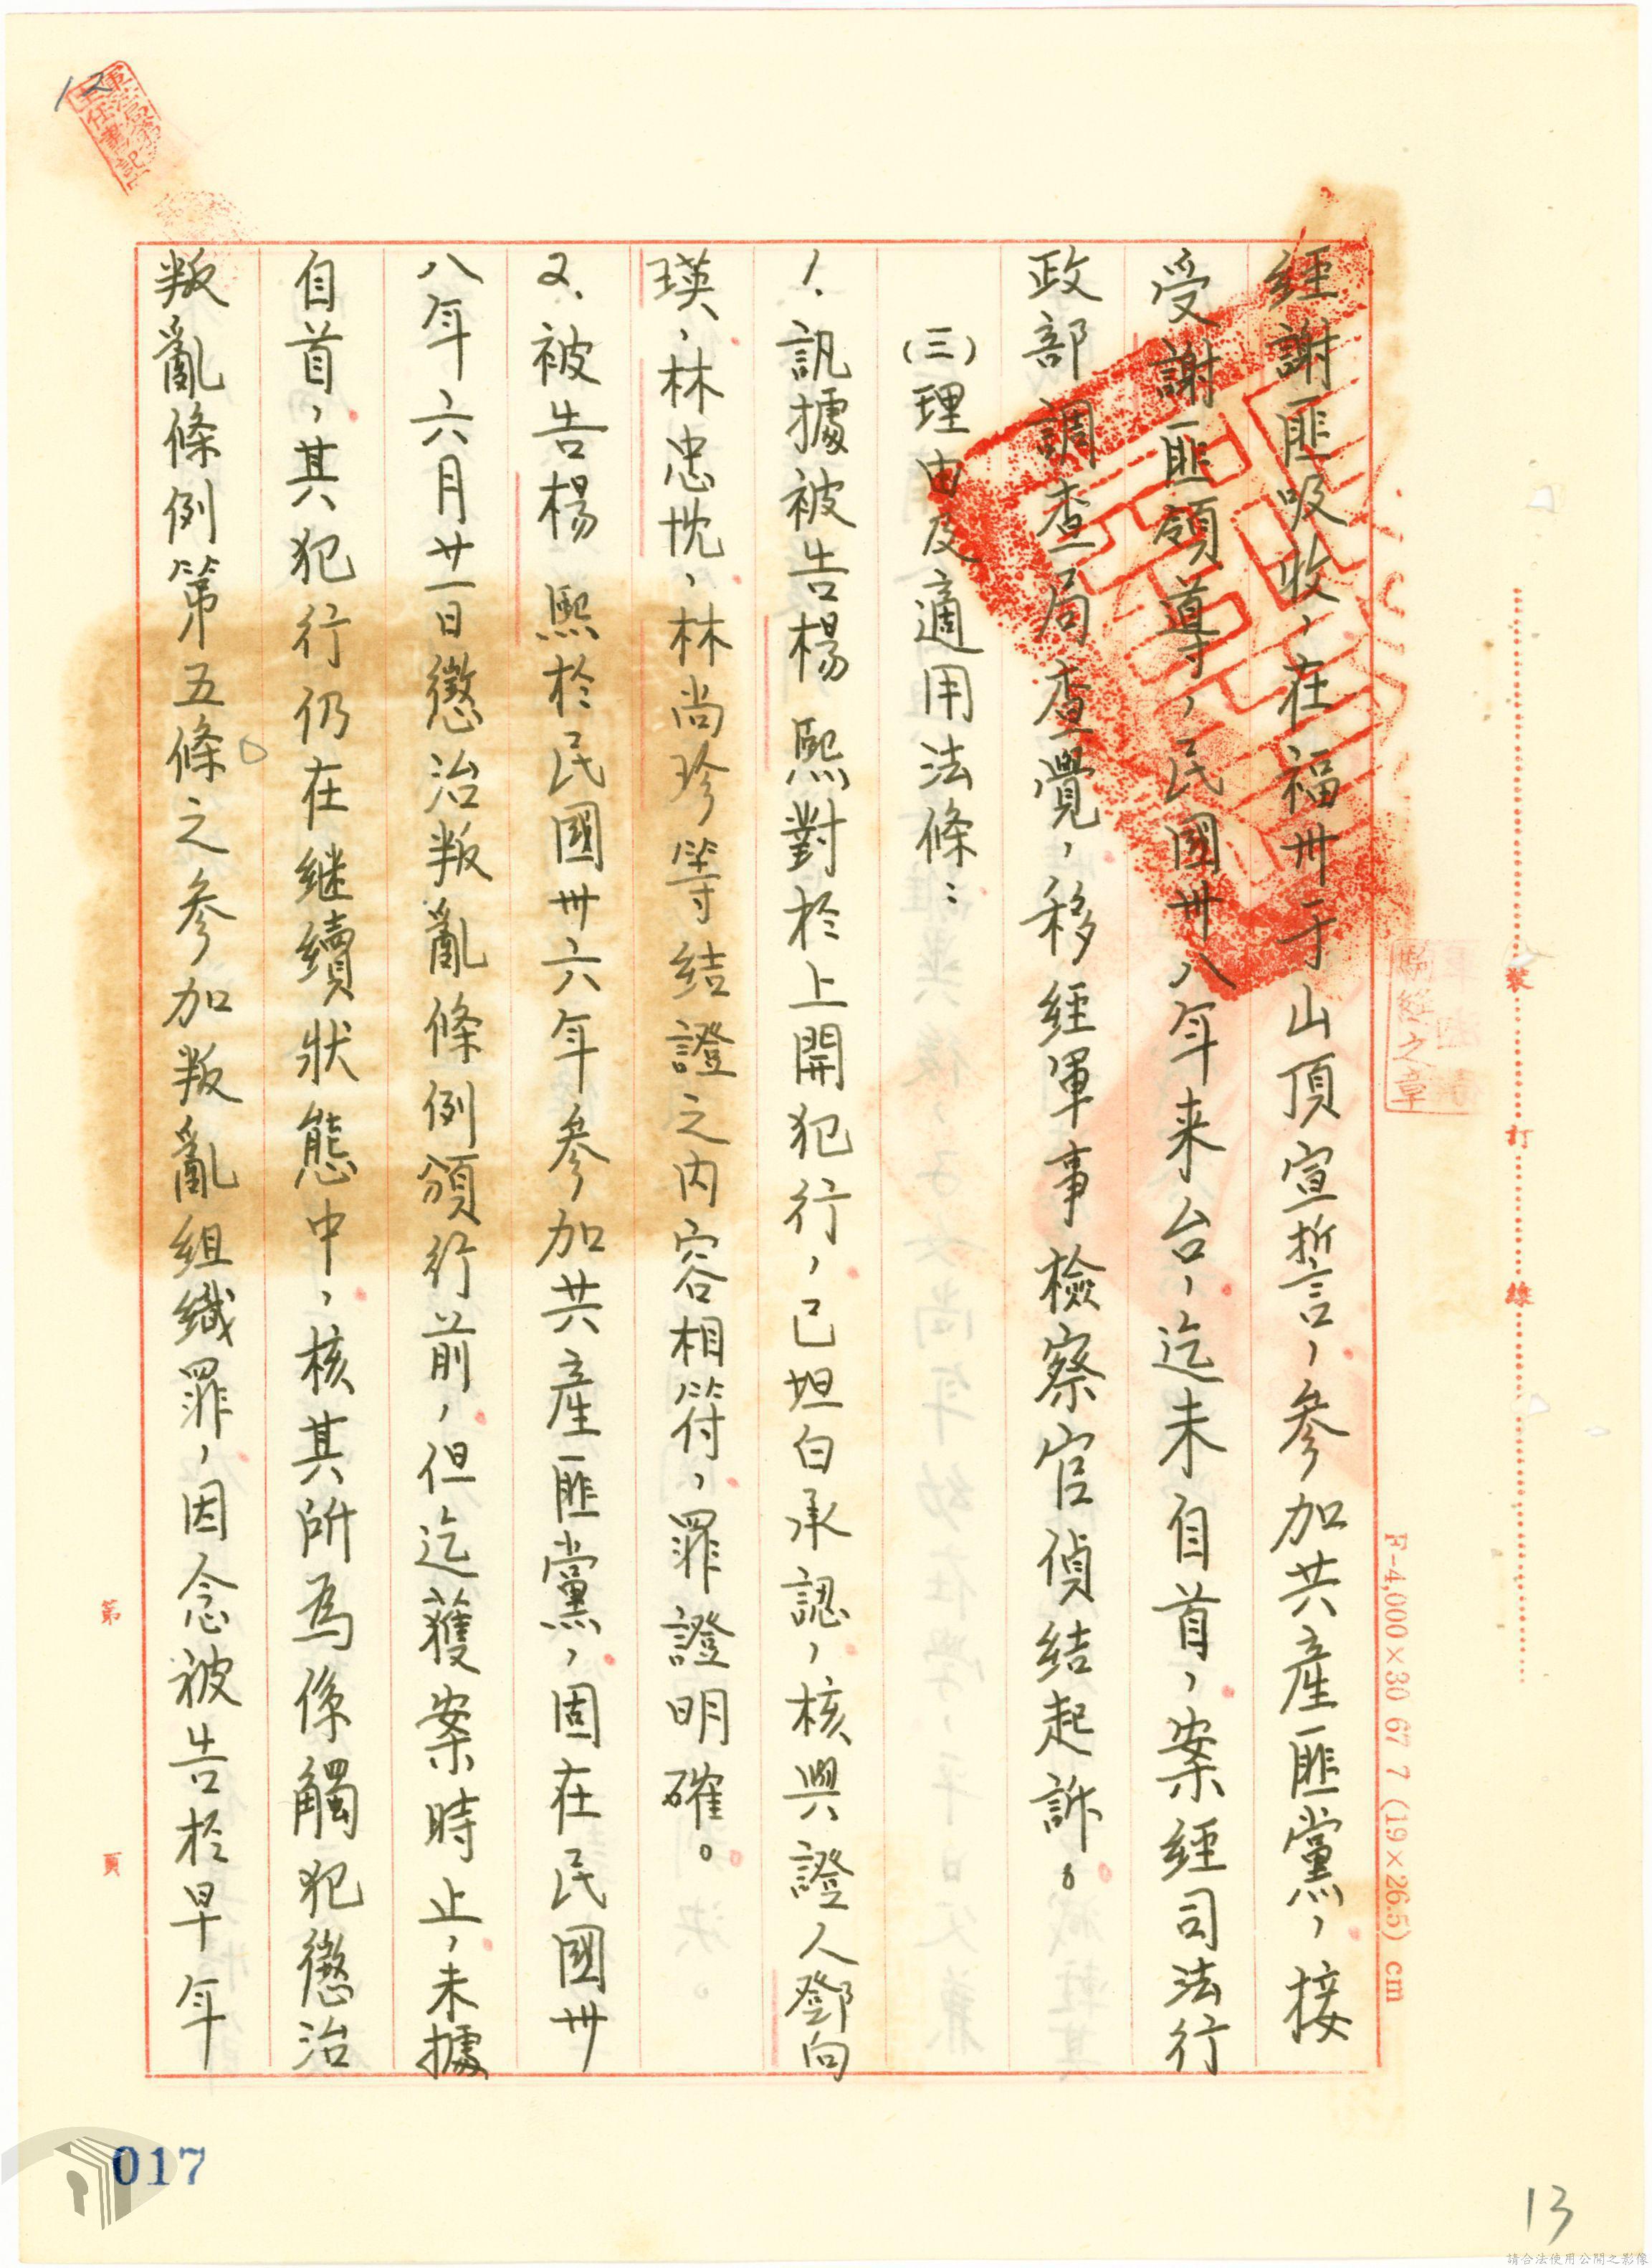 經謝匪吸收，在福州于山頂宣誓，參加共產匪黨，接
受謝匪領導，民國卅八年来台，迄未自首，案經司法行
政部調查局查覺，移經軍事檢察官偵結起訴。
(三)理由及適用法條：
1.訊據被告楊熙對於上開犯行，已坦白承認，核與證人鄧向
瑛，林忠忱，林尚珍等結證之內容相符，罪證明確。
2.被告楊熙於民國卅六年參加共產匪黨，固在民國卅
八年六月廿一日懲治叛亂條例頒行前，但迄獲案時止，未據
自首，其犯行仍在継續狀態中，核其所為係觸犯懲治
叛亂條例第五條之參加叛亂組織罪，因念被告於早年
裝 訂 線
騎縫之章
F-4,000×30 67 7 (19×26.5) cm
第 頁
12
017
13
請合法使用公開之影像